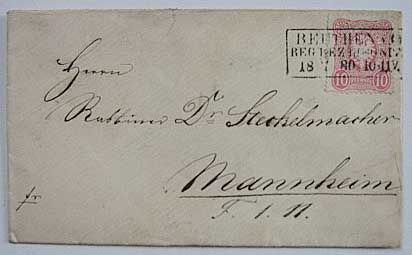 BEUTHEN a/O
REG. BEZ. LIEGNITZ
18 7 80 10-11V.
10 10
Herrn
Rabbiner Dr Steckelmacher
Mannheim
fr
F. 1. 11.